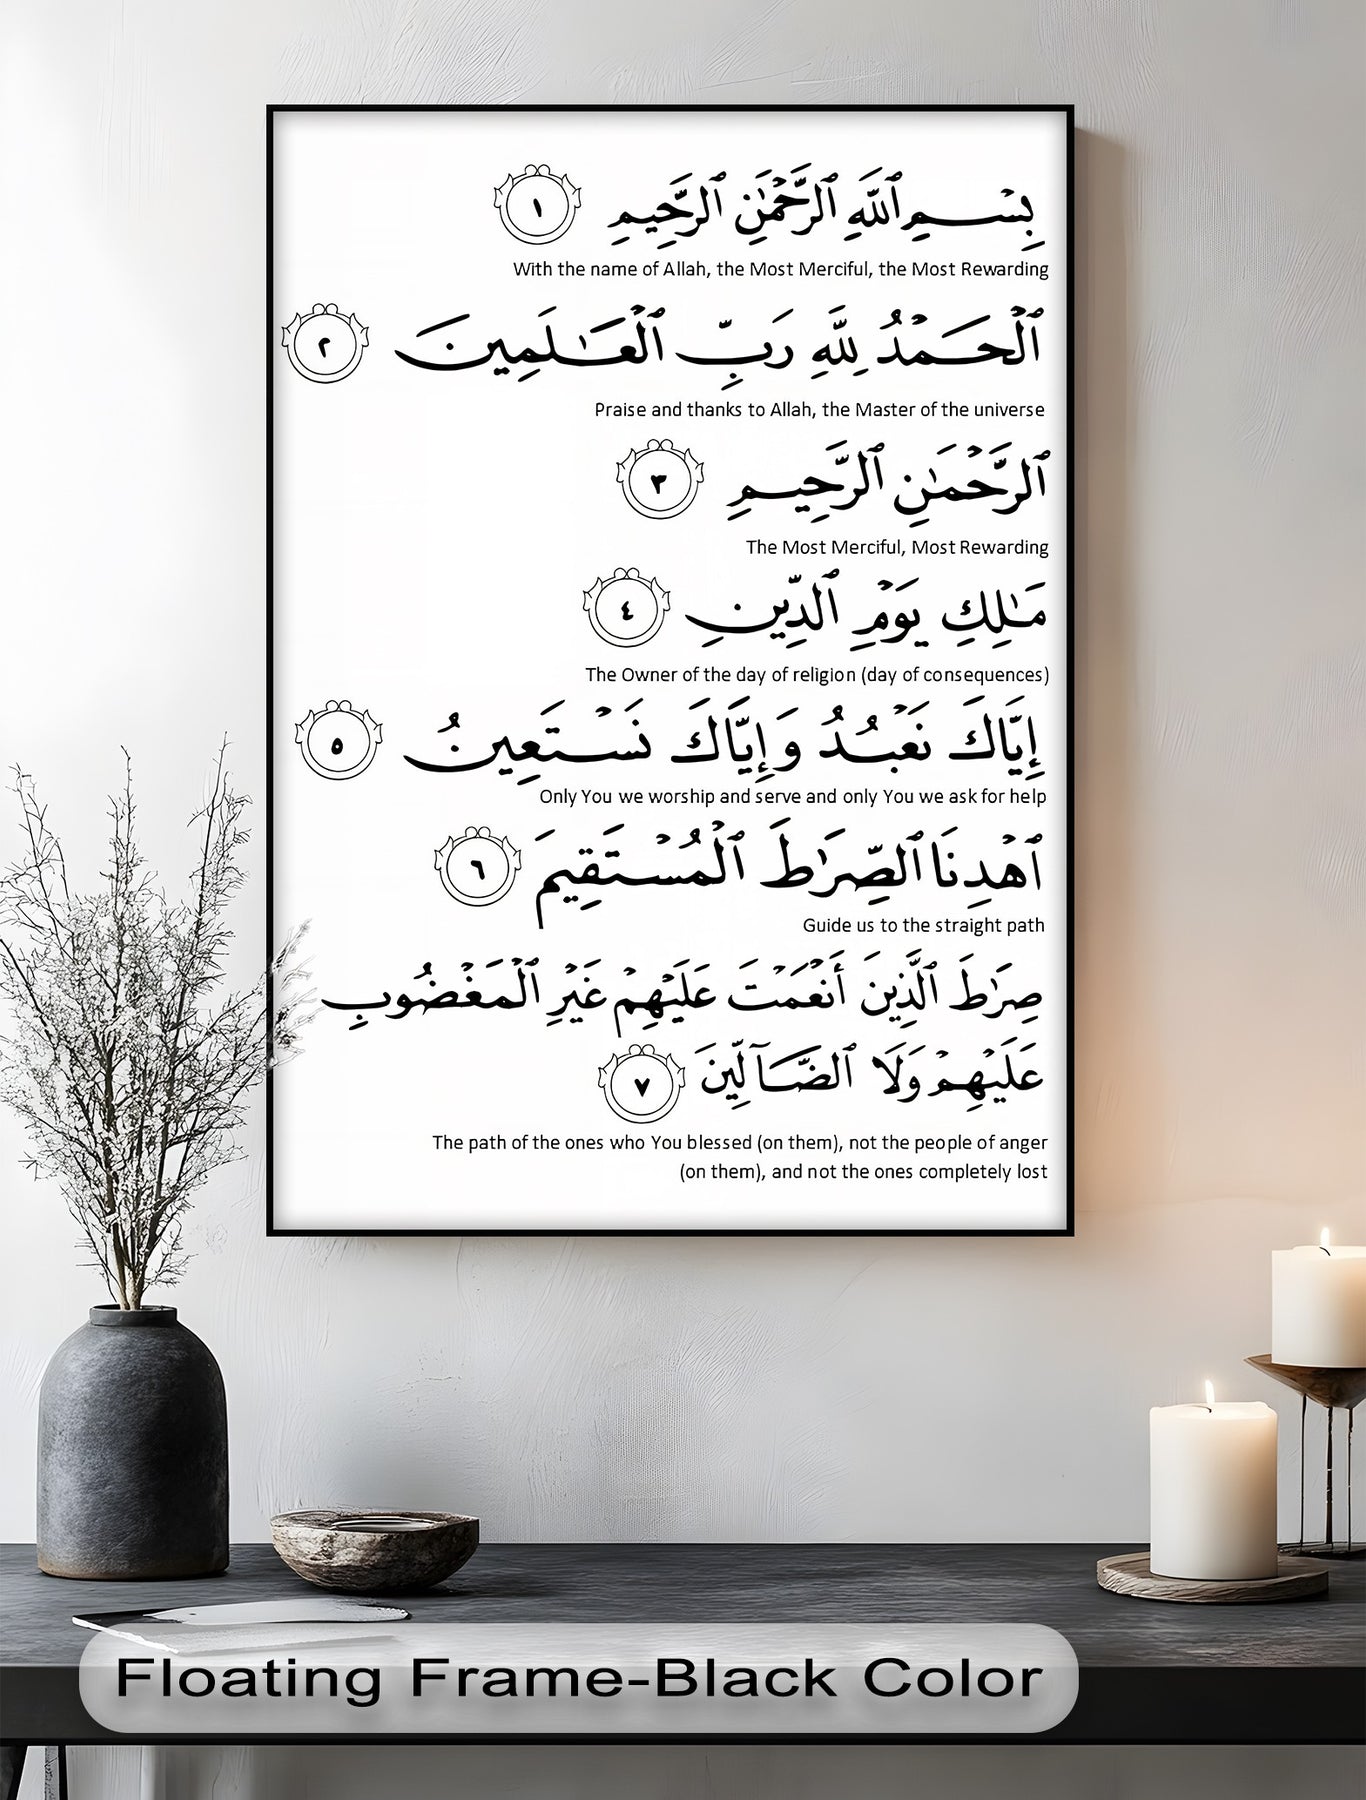 بِسْمِ ٱللَّهِ ٱلرَّحْمَٰنِ ٱلرَّحِيمِ ١
With the name of Allah, the Most Merciful, the Most Rewarding
ٱلْحَمْدُ لِلَّهِ رَبِّ ٱلْعَٰلَمِينَ ٢
Praise and thanks to Allah, the Master of the universe
ٱلرَّحْمَٰنِ ٱلرَّحِيمِ ٣
The Most Merciful, Most Rewarding
مَٰلِكِ يَوْمِ ٱلدِّينِ ٤
The Owner of the day of religion (day of consequences)
إِيَّاكَ نَعْبُدُ وَإِيَّاكَ نَسْتَعِينُ ٥
Only You we worship and serve and only You we ask for help
ٱهْدِنَا ٱلصِّرَٰطَ ٱلْمُسْتَقِيمَ ٦
Guide us to the straight path
صِرَٰطَ ٱلَّذِينَ أَنْعَمْتَ عَلَيْهِمْ غَيْرِ ٱلْمَغْضُوبِ
عَلَيْهِمْ وَلَا ٱلضَّآلِّينَ ٧
The path of the ones who You blessed (on them), not the people of anger
(on them), and not the ones completely lost
Floating Frame-Black Color